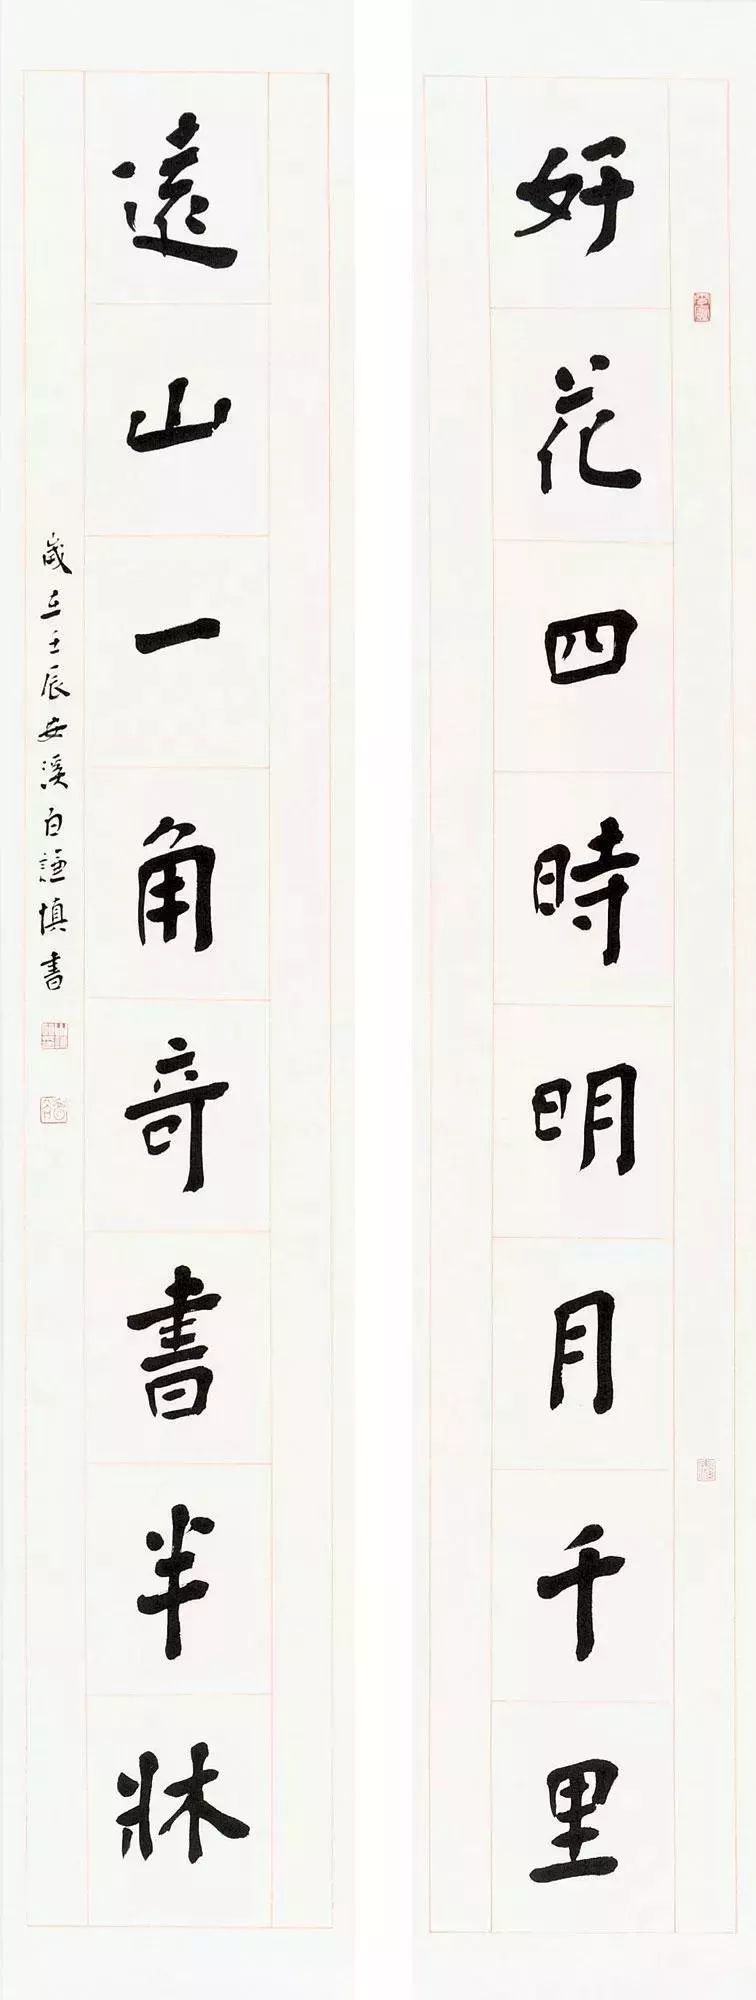 好花四時明月千里
遠山一角奇書半牀
歲在壬辰安溪白謙慎書